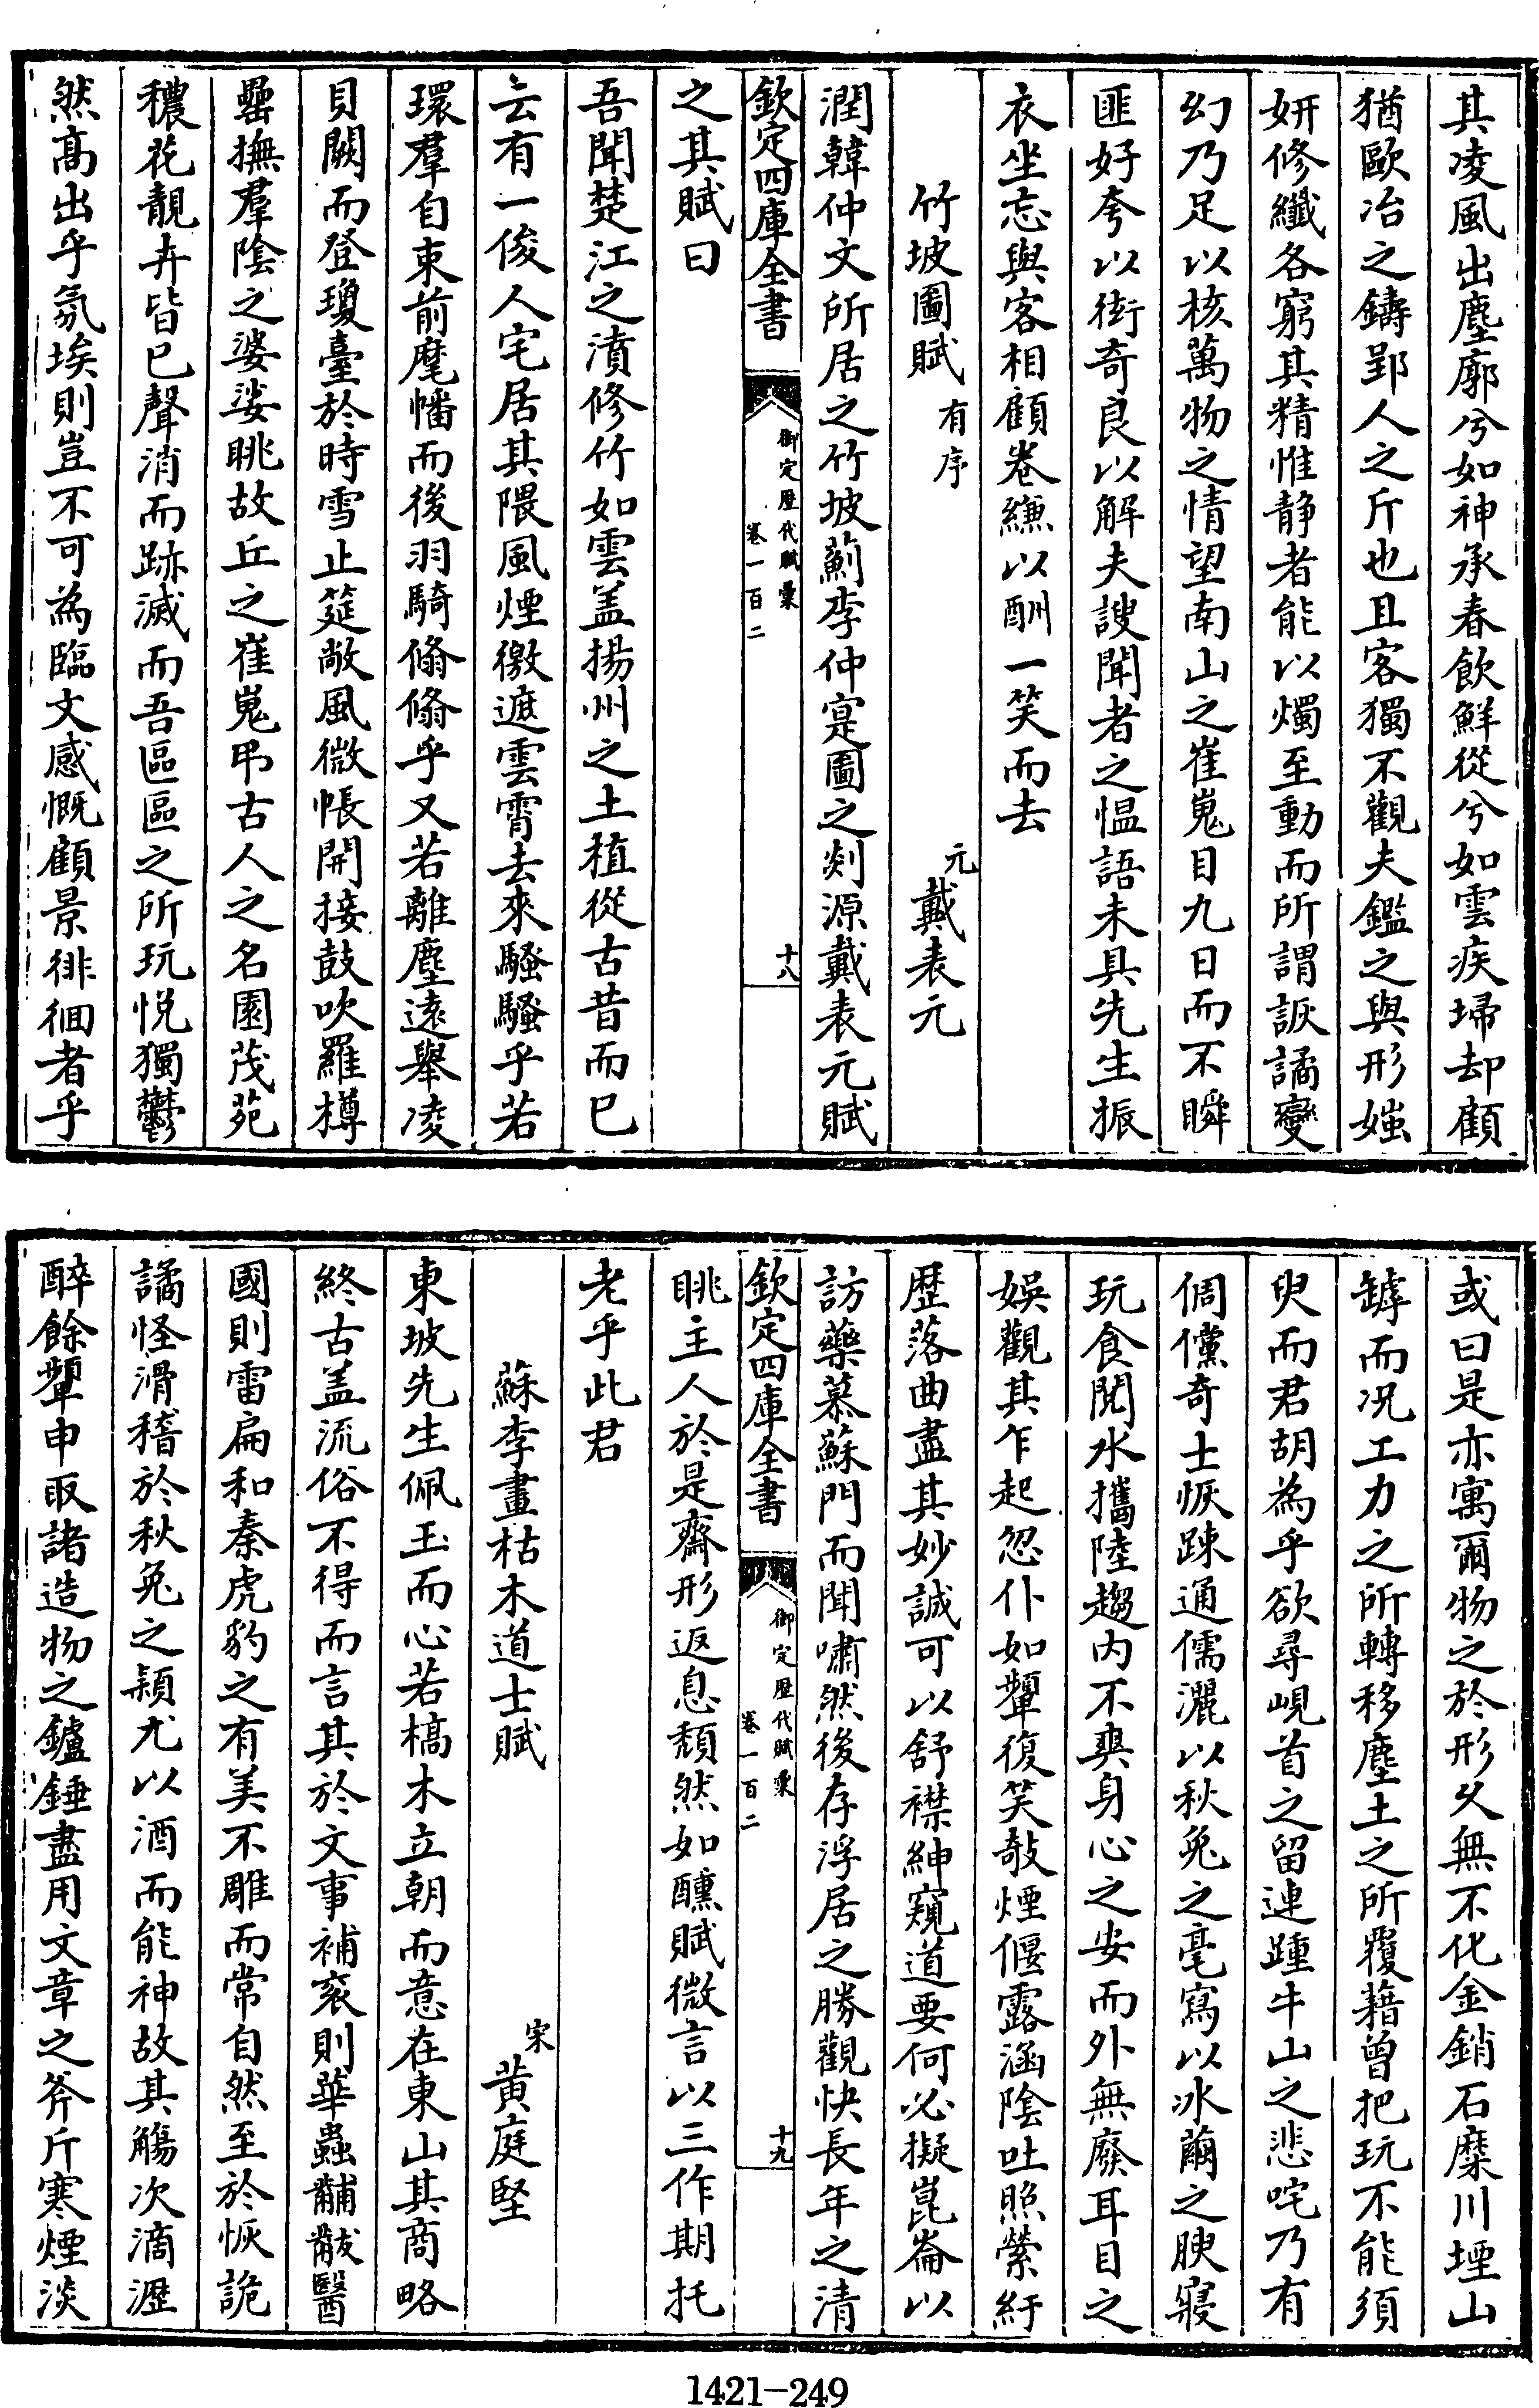 其凌風出塵廓兮如神承春飲鮮從兮如雲疾埽却顧
猶歐冶之鑄郢人之斤也且客獨不觀夫鑑之與形媸
妍修纖各窮其精惟静者能以燭至動而所謂詼譎變
幻乃足以核萬物之情望南山之崔嵬目九日而不瞬
匪好夸以衒奇良以解夫謏聞者之愠語未具先生振
衣坐忘與客相顧卷縑以酬一笑而去
竹坡圖賦 有序 元 戴表元
潤韓仲文所居之竹坡薊李仲寔圖之剡源戴表元賦
欽定四庫全書 御定歴代賦彙 卷一百二 十八
之其賦曰
吾聞楚江之濆修竹如雲盖揚州之土植從古昔而已
云有一俊人宅居其隈風煙徼遮雲霄去來騷騷乎若
環羣自東前麾幡而後羽騎翛翛乎又若離塵遠舉凌
貝闕而登瓊臺於時雪止筵敞風微帳開接鼓吹羅樽
罍撫羣陰之婆娑眺故丘之崔嵬弔古人之名園茂苑
穠花靚卉皆已聲消而跡滅而吾區區之所玩悦獨鬱
然高出乎氛埃則豈不可為臨文感慨顧景徘徊者乎
或曰是亦寓爾物之於形久無不化金銷石糜川堙山
罅而况工力之所轉移塵土之所覆藉曾把玩不能須
臾而君胡為乎欲尋峴首之留連踵牛山之悲咤乃有
倜儻奇士恢踈通儒灑以秋兔之毫寫以冰繭之腴寢
玩食閲水攜陸趨内不爽身心之安而外無廢耳目之
娛觀其乍起忽仆如顰復笑敧煙偃露涵陰吐照縈紆
歴落曲盡其妙誠可以舒襟紳窺道要何必擬崑崙以
訪藥慕蘇門而聞嘯然後存浮居之勝觀快長年之清
欽定四庫全書 御定歴代賦彙 卷一百二 十九
眺主人於是齋形返息頹然如醺賦微言以三作期托
老乎此君
蘇李畫枯木道士賦 宋 黄庭堅
東坡先生佩玉而心若槁木立朝而意在東山其商略
終古盖流俗不得而言其於文事補衮則華蟲黼黻醫
國則雷扁和秦虎豹之有美不雕而常自然至於恢詭
譎怪滑稽於秋兔之穎尤以酒而能神故其觴次滴瀝
醉餘顰申取諸造物之鑪錘盡用文章之斧斤寒煙淡
1421-249